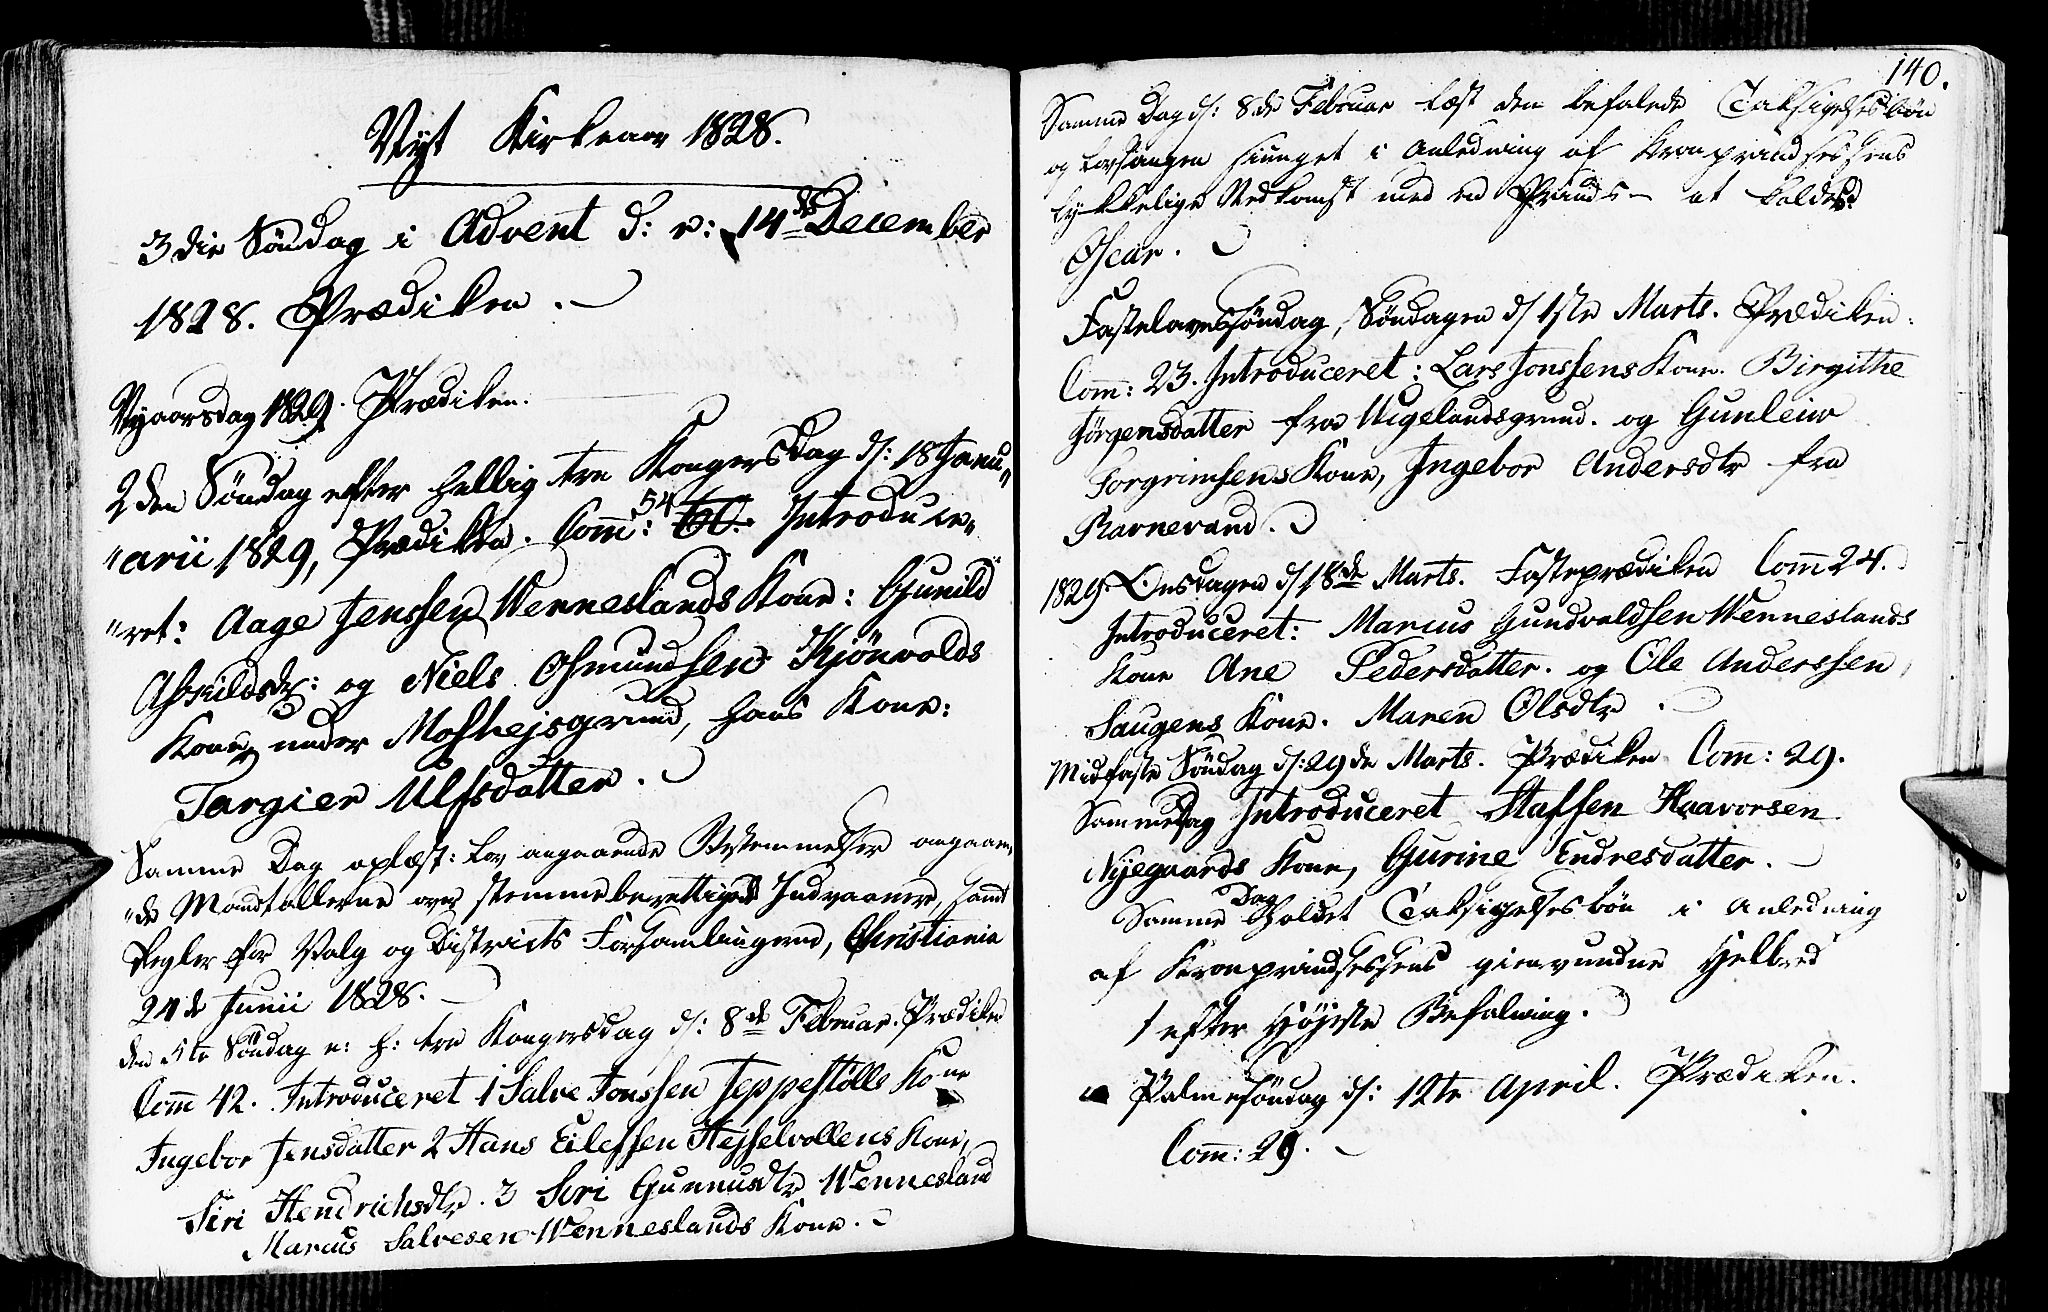 Nyt Kirkeaar 1828.
3die Søndag i Advent d: e: 14de December
1828. Prædiken.
Nyaarsdag 1829. Prædiken.
2den Søndag efter hellig tre Kongersdag d: 18 Janu„
„arii 1829, Prædiken. Com̅: 54 60. Introduce„
„ret: Aage Jenssen Wenneslands Kone: Gunild
Askildsdr: og Niels Osmundsen Kjönvolds
Kone, under Moshejsgrund, hans Kone:
Targier Ulfsdatter.
Samme Dag oplæst: Lov angaaende Bestemmelser angaaen„
„de Mandtallerne over stemmeberettigede Indvaanere, samt
Regler for Valg og Districts Forsamlingerne, Christiania
24de Junii 1828.
den 5te Søndag e: h: tre Kongersdag d: 8de Februar. Prædiken
Com̅ 42. Introduceret 1 Salve Jonssen Jeppestölls Kone
Ingebor Jensdatter 2 Hans Eilefsen Hejselvollens Kone,
Siri Hendrichsdtr. 3 Siri Gunnusdtr Wennesland
Marcus Salvesen Wenneslands Kone.
140.
Samme Dag d: 8de Februar læst den befalede Taksigelsesbön
og Lovsangen siunget i Anledning af Kronprindsessens
lykkelige Nedkomst med en Prinds at kaldes:
Oscar.
Fastelavnssöndag, Söndagen d 1ste Marts. Prædiken.
Com̅: 23. Introduceret: Lars Jonssens Kone. Birgithe
Jörgensdatter fra Wigelandsgrund. og Gunleiv
Torgrimsens Kone, Ingebor Andersdtr fra
Ravnevand.
1829. Onsdagen d 18de Marts. Fasteprædiken Com̅ 24.
Introduceret: Marcus Gundvaldsen Wenneslands
Kone Ane Pedersdatter. og Ole Anderssen
Haugens Kone. Maren Olsdtr.
Midfaste Söndag d: 29de Marts. Prædiken Com̅: 29.
Sammedag Introduceret Staffen Haavorsen
Nyegaards Kone, Gurine Endresdatter.
Samme Dag Holdet Taksigelsesbön i Anledning
af Kronprindsessens gienvundne Helbred
efter Højeste Befalning.
Palmesöndag d: 12te April. Prædiken.
Com̅: 29.